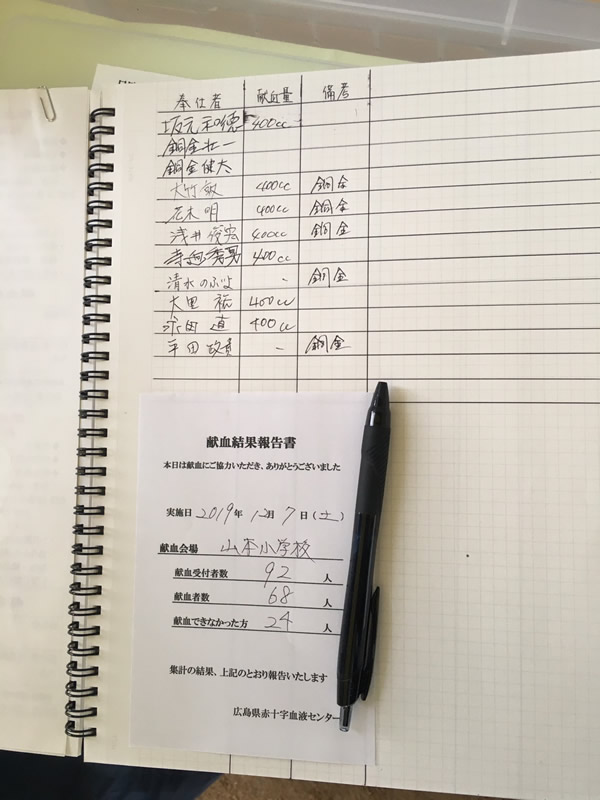 奉仕者 献血量 備考
坂元和徳 400cc
銅金壮一
銅金健太
大竹敏 400cc 銅金
花木明 400cc 銅金
浅井俊宏 400cc 銅金
秀男 400cc
清水のぶよ - 銅金
大里祐 400cc
永田直 400cc
平田 - 銅金
献血結果報告書
本日は献血にご協力いただき、ありがとうございました
実施日 2019年 12月 7日(土)
献血会場 山本小学校
献血受付者数 92 人
献血者数 68 人
献血できなかった方 24 人
集計の結果、上記のとおり報告いたします
広島県赤十字血液センター